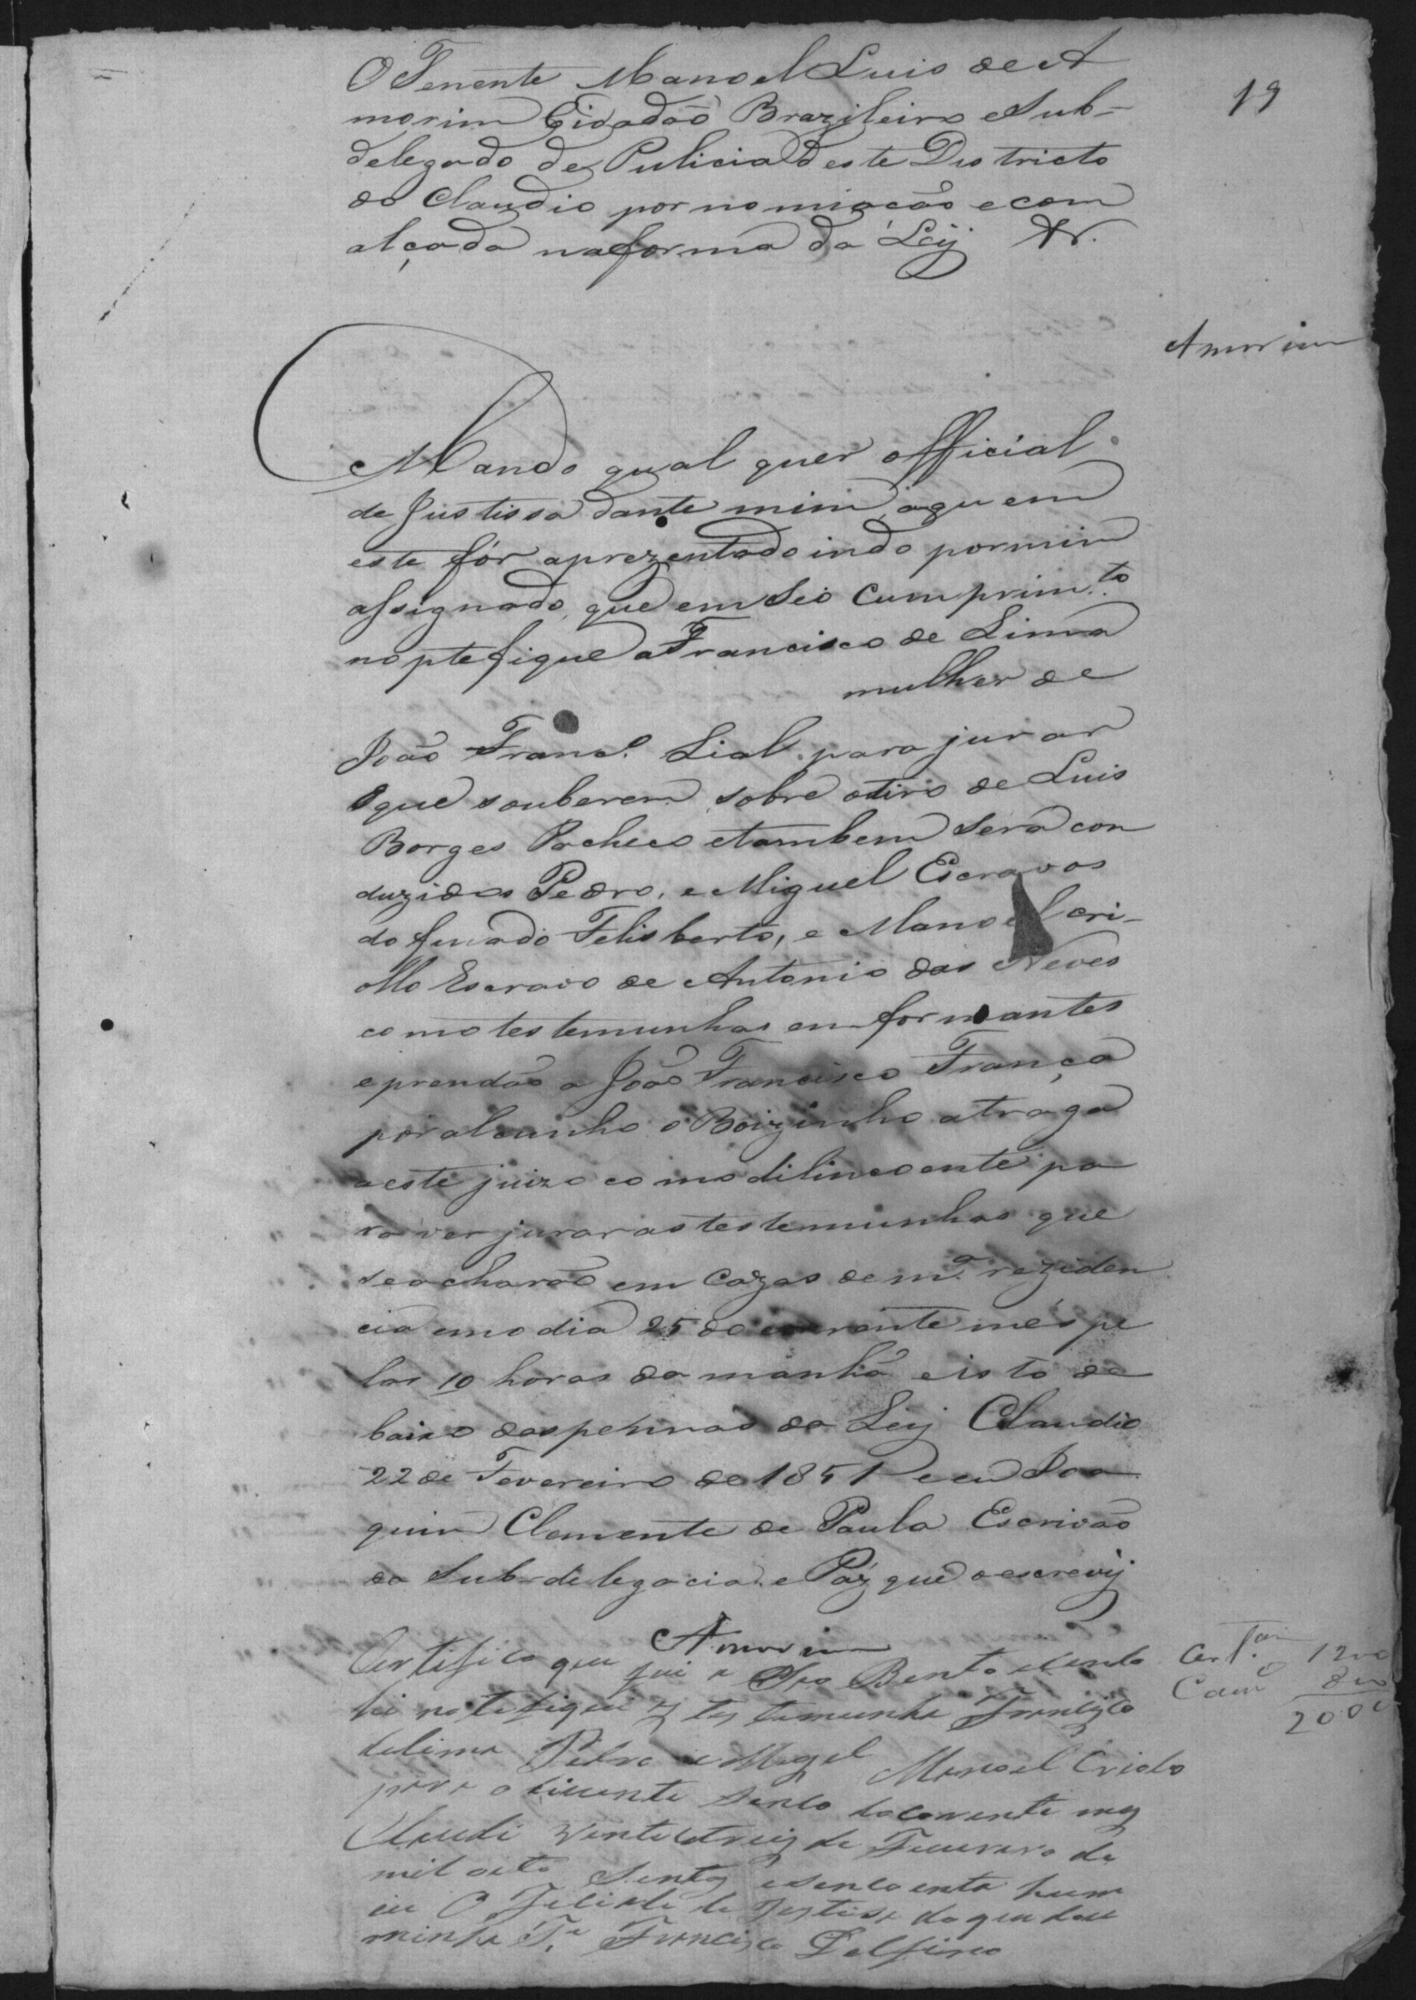 19
O Tenente Manoel Luis de A
morim Cidadão Brazileiro e Sub-
delegado de Pulicia deste Districto
do Claudio por nomiacão e com
alçada na forma da Leij &r.
Amorim
Mando qual quer official
de Justissa dante mim, aquem
este fór aprezentado indo por mim
assignado, que em seo Cumprim.to
noptefique a Francisco de Lima
mulher de
João Franc.o Lial para jurar
o que souberem sobre o tiro de Luis
Borges Pacheco etambem será con
duzidos Pedro, e Miguel Escravos
do finado Felisberto, e Manoel cri-
ollo Escravo de Antonio das Neves
como testemunhas emformantes
e prendão a João Francisco França
por alcunho o Boizinho a traga
a este juizo como dilincoente pa
ra ver jurar as testemunhas que
se acharão em Cazas de m.a reziden
cia em o dia 25 do corrente mês pe
las 10 horas da manhã e isto de
baixo das pennas da Leij Claudio
22 de Fevereiro de 1851 e eu Joa
quim Clemente de Paula Escrivão
da Sub-delegacia e Páz que o escrevij
Amorim
Certifico que fui a São Bento e
notefiquei testemunha Francizco
delima Pedro e Megel Manoel Criolo
para o dia vinte Sinco do corente mez
Claudi vinte e treiz de Feverero de
mil oito Sentos e sencoenta hum
eu O Ficiale de Justisa do que dou
minha F.e Francisco Delfino
Cert.am 1200
Cam.o 800
2000